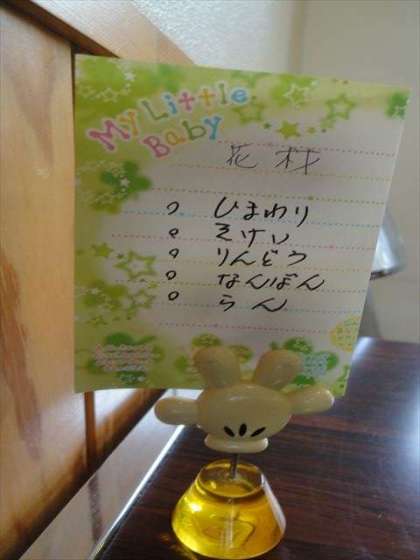 My Little
Baby
花材
○ ひまわり
○ そけい
○ りんどう
○ なんばん
○ らん